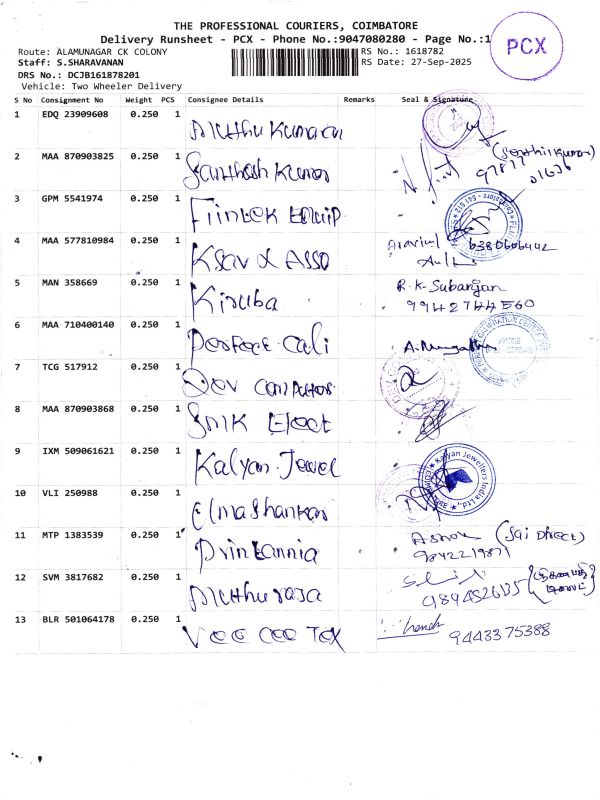 THE PROFESSIONAL COURIERS, COIMBATORE
Delivery Runsheet - PCX - Phone No.:9047080280 - Page No.:1
PCX
Route: ALAMUNAGAR CK COLONY
RS No.: 1618782
Staff: S.SHARAVANAN
RS Date: 27-Sep-2025
DRS No.: DCJB161878201
Vehicle: Two Wheeler Delivery
S No Consignment No Weight PCS Consignee Details Remarks Seal & Signature
1 EDQ 23909608 0.250 1 Muthu Kumaran
2 MAA 870903825 0.250 1 Santhosh Kumar (Senthilkumar)
3 GPM 5541974 0.250 1 Fiintek Equip
4 MAA 577810984 0.250 1 Ksav & Asso Aravind 6380606442
5 MAN 358669 0.250 1 Kiruba R.K. Subargan
9942744560
6 MAA 710400140 0.250 1 Perfect Cali
7 TCG 517912 0.250 1 Dev Computer
8 MAA 870903868 0.250 1 SMK Elect
9 IXM 509061621 0.250 1 Kalyan Jewel Kalyan Jewellers India Ltd.,
10 VLI 250988 0.250 1 Elmashankar
11 MTP 1383539 0.250 1 Printannia Ashok (Sai Direct)
12 SVM 3817682 0.250 1 Muthuraja
13 BLR 501064178 0.250 1 Vee Cee Tex 9443375388